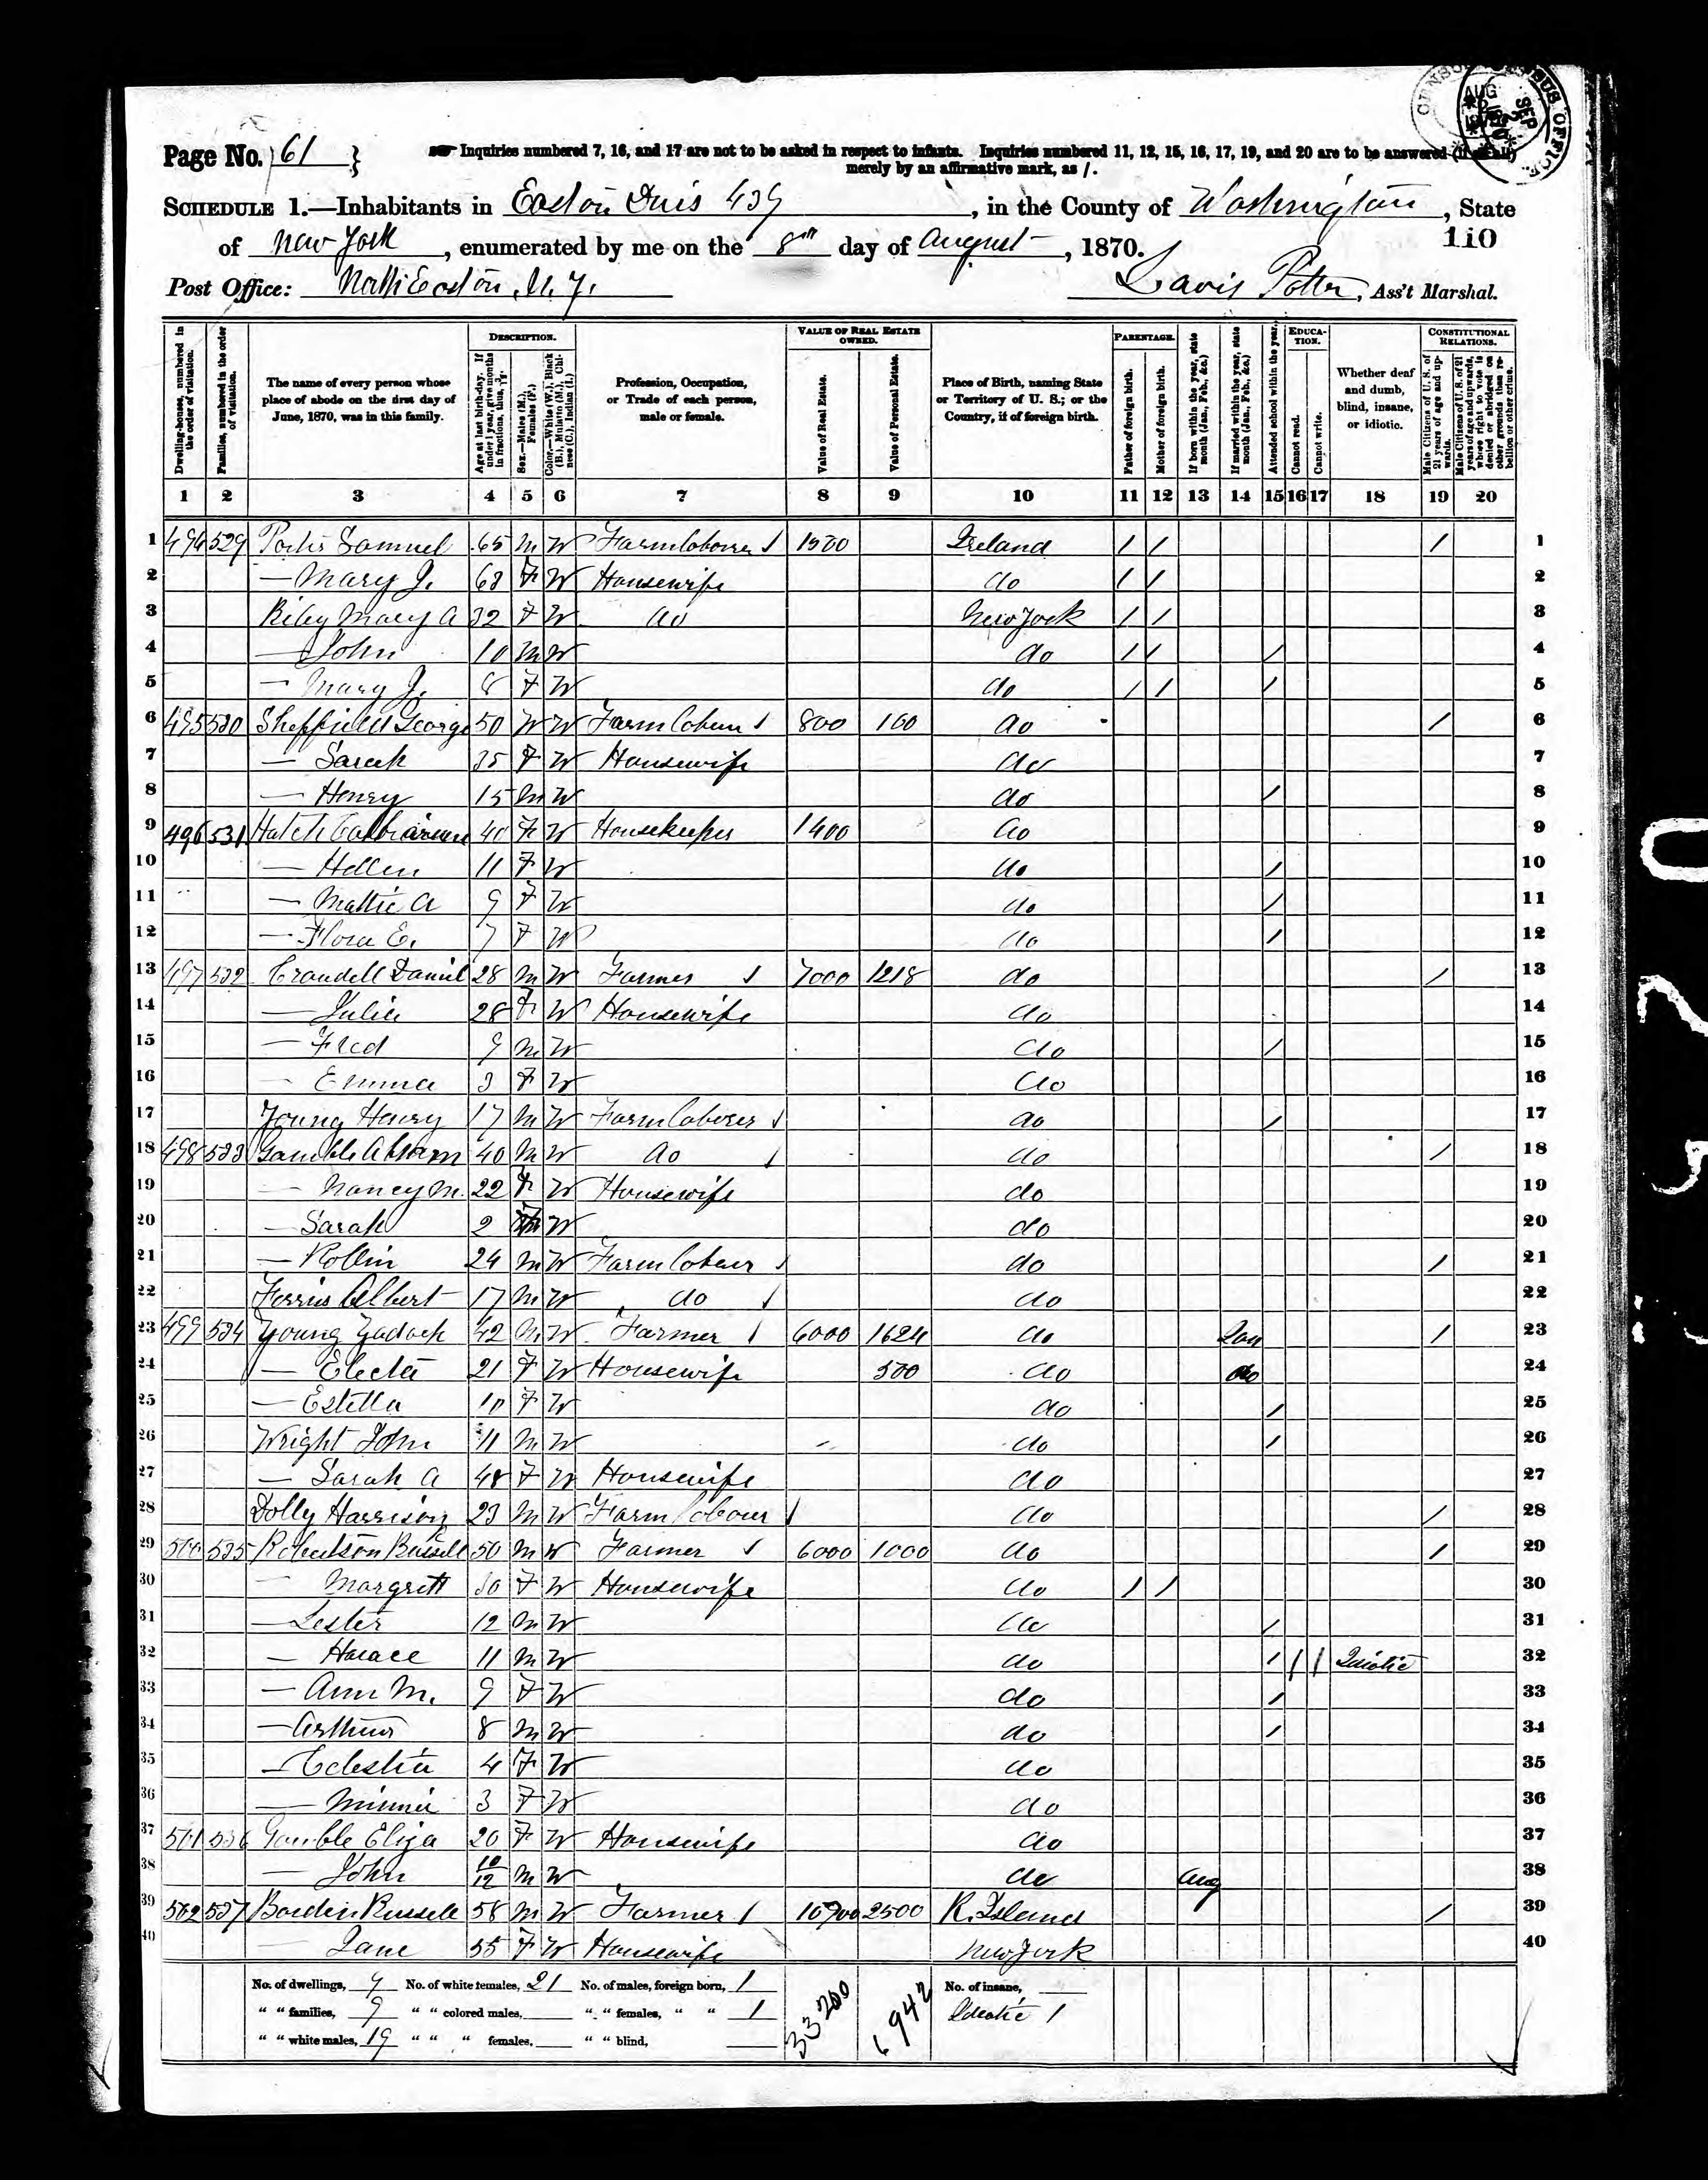 Page No. 61
Inquiries numbered 7, 16, and 17 are not to be asked in respect to infants. Inquiries numbered 11, 12, 15, 16, 17, 19, and 20 are to be answered (if at all)
merely by an affirmative mark, as /.
SCHEDULE 1.—Inhabitants in Easton, in the County of Washington, State
of New York, enumerated by me on the 8th day of August, 1870.
110
Post Office: North Easton, N. Y. Potter, Ass't Marshal.
Dwelling-houses, numbered in the order of visitation.
Families, numbered in the order of visitation.
The name of every person whose place of abode on the first day of June, 1870, was in this family.
DESCRIPTION.
Age at last birth-day. If under 1 year, give months in fractions, thus, 3/12.
Sex.—Males (M.), Females (F.)
Color.—White (W.), Black (B.), Mulatto (M.), Chinese (C.), Indian (I.)
Profession, Occupation, or Trade of each person, male or female.
VALUE OF REAL ESTATE OWNED.
Value of Real Estate.
Value of Personal Estate.
Place of Birth, naming State or Territory of U. S.; or the Country, if of foreign birth.
PARENTAGE.
Father of foreign birth.
Mother of foreign birth.
If born within the year, state month (Jan., Feb., &c.)
If married within the year, state month (Jan., Feb., &c.)
Attended school within the year.
EDUCATION.
Cannot read.
Cannot write.
Whether deaf and dumb, blind, insane, or idiotic.
CONSTITUTIONAL RELATIONS.
Male Citizens of U. S. of 21 years of age and upwards.
Male Citizens of U. S. of 21 years of age and upwards, whose right to vote is denied or abridged on other grounds than rebellion or other crime.
1 2 3 4 5 6 7 8 9 10 11 12 13 14 15 16 17 18 19 20
1 529 Samuel 65 M W Farm laborer 1500 Ireland / / / 1
2 — Mary J. 68 F W Housewife do / / 2
3 Mary A 32 F W do New York / / 3
4 — John 10 M W do / / / 4
5 — Mary J. 8 F W do / / / 5
6 495 530 Sheffield George 50 W Farm laborer 800 100 do / 6
7 — Sarah 35 F W Housewife do 7
8 — Henry 15 M W do / 8
9 496 531 Hatch 40 F W Housekeeper 1400 do 9
10 — Hellen 11 F W do / 10
11 — Mattie A 9 F W do / 11
12 — Flora E. 7 F W do / 12
13 497 532 Crandell Daniel 28 M W Farmer 7000 1218 do / 13
14 — Julia 28 F W Housewife do 14
15 — Fred 9 M W do / 15
16 — Emma 3 F W do 16
17 Young Henry 17 M W Farm laborer do / 17
18 498 533 Gamble Abram 40 M W do do / 18
19 — Nancy M. 22 F W Housewife do 19
20 — Sarah 2 F W do 20
21 — Rollin 24 M W Farm laborer do / 21
22 Ferris Albert 17 M W do do 22
23 499 534 Young Zadock 42 M W Farmer 6000 1624 do Jan / 23
24 — Electa 21 F W Housewife 500 do do 24
25 — Estella 10 F W do / 25
26 Wright John 11 M W do / 26
27 — Sarah A 48 F W Housewife do 27
28 Dolly Harrison 23 M W Farm laborer do / 28
29 500 535 Robertson Russell 50 M W Farmer 6000 1000 do / 29
30 — Margrett 30 F W Housewife do / / 30
31 — Lester 12 M W do / 31
32 — Horace 11 M W do / / / Idiotic 32
33 — Ann M. 9 F W do / 33
34 — Arthur 8 M W do / 34
35 — Celestia 4 F W do 35
36 — Minnie 3 F W do 36
37 501 536 Gamble Eliza 20 F W Housewife do 37
38 — John 10/12 M W do Aug 38
39 502 537 Borden Russell 58 M W Farmer 2500 R. Island / 39
40 — Jane 55 F W Housewife New York 40
No. of dwellings, 9 No. of white females, 21 No. of males, foreign born, 1 33200 6942 No. of insane,
" " families, 9 " " colored males, " " females, " " 1 Idiotic 1
" " white males, 19 " " " females, " " blind,